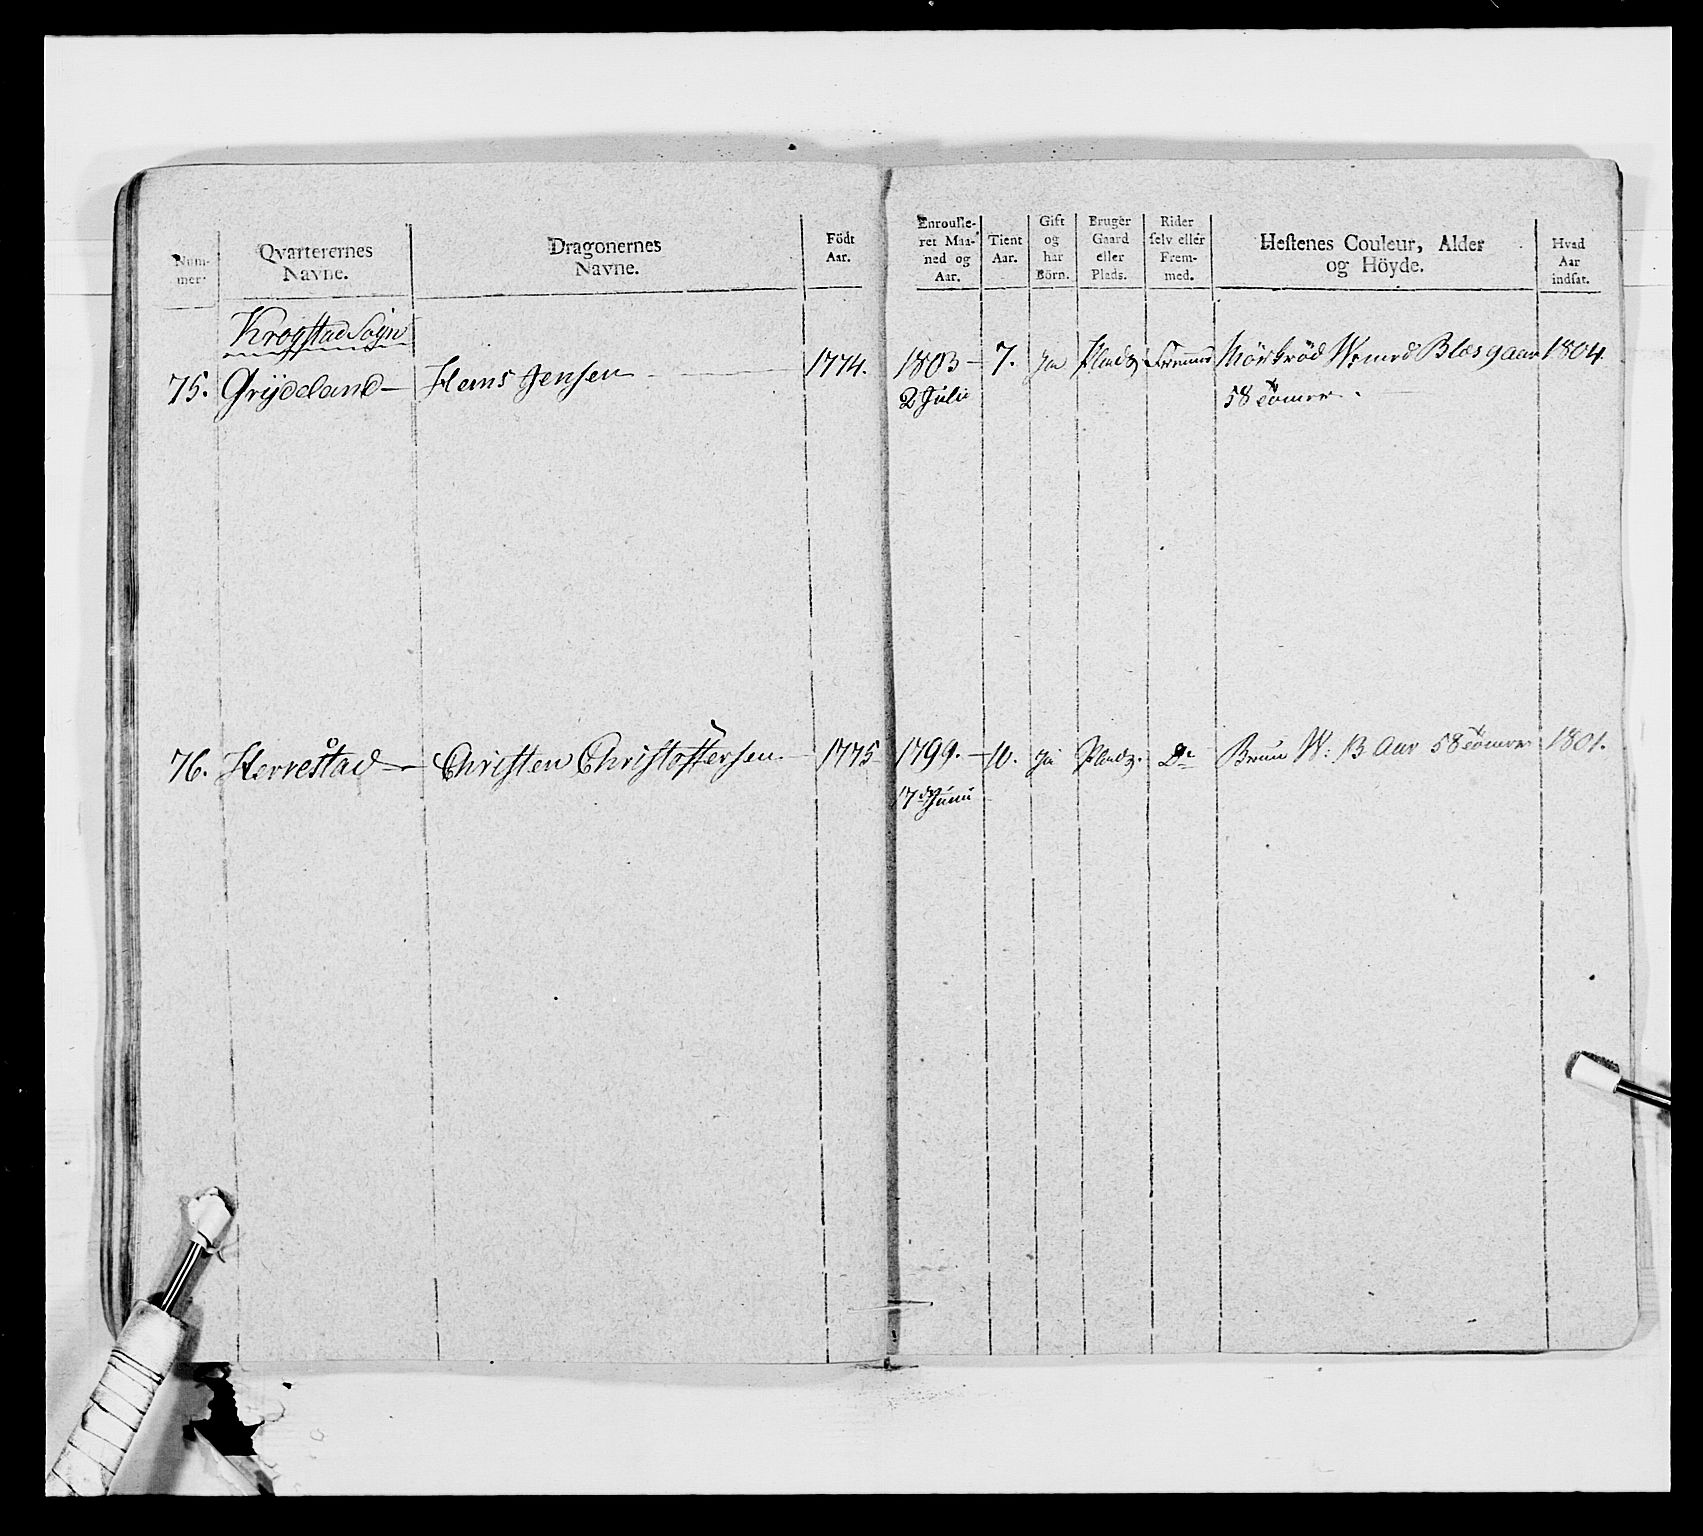 Num-
mer.
Qvarterernes
Navne.
Dragonernes
Navne.
Födt
Aar.
Enroulle-
ret Maa-
ned og
Aar.
Tient
Aar.
Gift
og
har
Börn.
Bruger
Gaard
eller
Plads.
Rider
selv eller
Frem-
med.
Hestenes Couleur, Alder
og Höyde.
Hvad
Aar
indsat.
Krogstad Sogn
75. Grydeland Hans Jensen 1774. 1803 7. Ja Plads Fremmed Mörkröd W med Blis 9 aar 1804
2 Julii 58 Tommer
76. Herrestad Christen Christoffersen 1775 1799. 10. Ja Plads. Do Bruun W. 13 Aar 58 Tommer 1801.
17de Junii